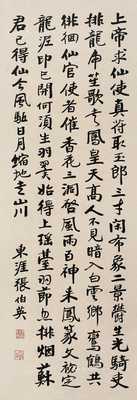 上帝求仙使真符取玉郎三才閒布象二景鬱生光騎吏
排龍虎笙歌走鳳皇天高人不見暗入白雲鄉鸞鶴共
徘徊仙官使者催香花三洞啓風雨百神來鳳篆文初定
龍泥印已開何須生羽翼始得上瑤臺羽節忽排烟蘇
君已得仙命風驅日月縮地走山川
東涯張伯英